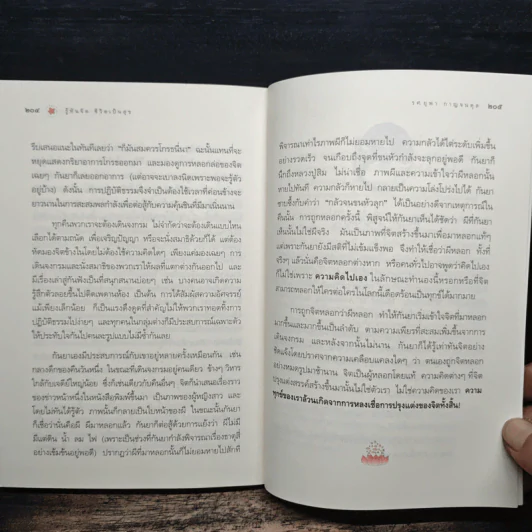 ๒๐๔ รู้ทันจิต ชีวิตเป็นสุข
รีบเสนอแนะในทันทีเลยว่า “ก็มันสมควรโกรธนี่นา” ฉะนั้นแทนที่จะ
หยุดแสดงกริยาอาการโกรธออกมา และมองดูการหลอกล่อของจิต
เฉยๆ กันยาก็เลยออกอาการ (แต่อาจจะเบาลงนิดเพราะพอจะรู้ตัว
อยู่บ้าง) ดังนั้น การปฏิบัติธรรมจึงจำเป็นต้องใช้เวลาที่ค่อนข้างจะ
ยาวนานในการสะสมพลังกำลังเพื่อต่อสู้กับความคุ้นชินที่มีมาเนิ่นนาน
ทุกคืนพวกเราจะต้องเดินจงกรม ไม่จำกัดว่าจะต้องเดินแบบไหน
เลือกได้ตามถนัด เพื่อเจริญปัญญา หรือจะนั่งสมาธิด้วยก็ได้ แต่ต้อง
หัดมองจิตข้างในโดยไม่ต้องใช้ความคิดใดๆ เพียงแค่มองเฉยๆ การ
เดินจงกรมและนั่งสมาธิของพวกเราให้ผลที่แตกต่างกันออกไป และ
มีเรื่องเล่าสู่กันฟังเป็นที่สนุกสนานบ่อยๆ เช่น บางคนอาจเกิดความ
รู้สึกตัวลอยขึ้นไปติดเพดานห้อง เป็นต้น การได้สัมผัสความอัศจรรย์
แม้เพียงเล็กน้อย ก็เป็นแรงดึงดูดที่สำคัญไม่ให้พวกเราทอดทิ้งการ
ปฏิบัติธรรมไปง่ายๆ และทุกคนในกลุ่มต่างก็มีประสบการณ์เฉพาะตัว
ให้ประทับใจกันไปคนละรูปแบบไม่มีซ้ำกันเลย
กันยาเองมีประสบการณ์กับเขาอยู่หลายครั้งเหมือนกัน เช่น
กลางดึกของคืนวันหนึ่ง ในขณะที่เดินจงกรมอยู่คนเดียว ข้างๆ วิหาร
ใกล้กับเจดีย์ใหญ่น้อย ซึ่งก็เช่นเดียวกับคืนอื่นๆ จิตก็นำเสนอเรื่องราว
ของข่าวหน้าหนึ่งในหนังสือพิมพ์ขึ้นมา เป็นภาพของผู้หญิงสาว และ
โดยไม่ทันได้รู้ตัว ภาพนั้นก็กลายเป็นใบหน้าของผี ในขณะนั้นกันยา
ก็เชื่อว่านั่นคือผี ผีมาหลอกแล้ว กันยาก็ต่อสู้ด้วยการแย้งว่า ผีไม่มี
มีแต่ดิน น้ำ ลม ไฟ (เพราะเป็นช่วงที่กันยากำลังพิจารณาเรื่องธาตุสี่
อย่างเข้มข้นอยู่พอดี) ปรากฏว่าผีที่มาหลอกนั้นก็ไม่ยอมหายไปสักที
๒๐๕
พิจารณาเท่าไรภาพผีก็ไม่ยอมหายไป ความกลัวได้ไต่ระดับเพิ่มขึ้น
อย่างรวดเร็ว จนเกือบถึงจุดที่ขนหัวกำลังจะลุกอยู่พอดี กันยาก็
นึกถึงหลวงปู่สิม ไม่น่าเชื่อ ภาพผีและความเข้าใจว่าผีหลอกนั้น
หายไปทันที ความกลัวก็หายไป กลายเป็นความโล่งโปร่งไปได้ กันยา
ซาบซึ้งกับคำว่า “กลัวจนขนหัวลุก” ได้เป็นอย่างดีจากเหตุการณ์ใน
คืนนั้น การถูกหลอกครั้งนี้ พิสูจน์ให้กันยาเห็นได้ชัดว่า ผีที่กันยา
เห็นนั้นไม่ใช่ผีจริง มันเป็นภาพที่จิตสร้างขึ้นมาเพื่อมาหลอกแท้ๆ
แต่เพราะกันยายังมีสติที่ไม่เข้มแข็งพอ จึงทำให้เชื่อว่าผีหลอก ทั้งที่
จริงๆ แล้วนั่นคือจิตหลอกต่างหาก หรือคนทั่วไปอาจพูดว่าคิดไปเอง
ก็ไม่ใช่เพราะ ความคิดไปเอง ในลักษณะทำนองนี้หรอกหรือที่จิต
สามารถหลอกให้ใครต่อใครในโลกนี้เดือดร้อนเป็นทุกข์ได้มากมาย
การถูกจิตหลอกว่าผีหลอก ทำให้กันยาเริ่มเข้าใจจิตที่มาหลอก
มากขึ้นและมากขึ้นเป็นลำดับ ตามความเพียรที่สะสมเพิ่มขึ้นจากการ
เดินจงกรม และหลังจากวันนั้นไม่นาน กันยาก็ได้รู้เท่าทันจิตอย่าง
ชัดแจ้งโดยปราศจากความเคลือบแคลงใดๆ ว่า ตนเองถูกจิตหลอก
อย่างหมดรูปมาช้านาน จิตเป็นผู้หลอกโดยแท้ ความคิดต่างๆ ที่จิต
ปรุงแต่งสรรค์สร้างขึ้นมานั้นไม่ใช่ตัวเรา ไม่ใช่ความคิดของเรา ความ
ทุกข์ของเราล้วนเกิดจากการหลงเชื่อการปรุงแต่งของจิตทั้งสิ้น!